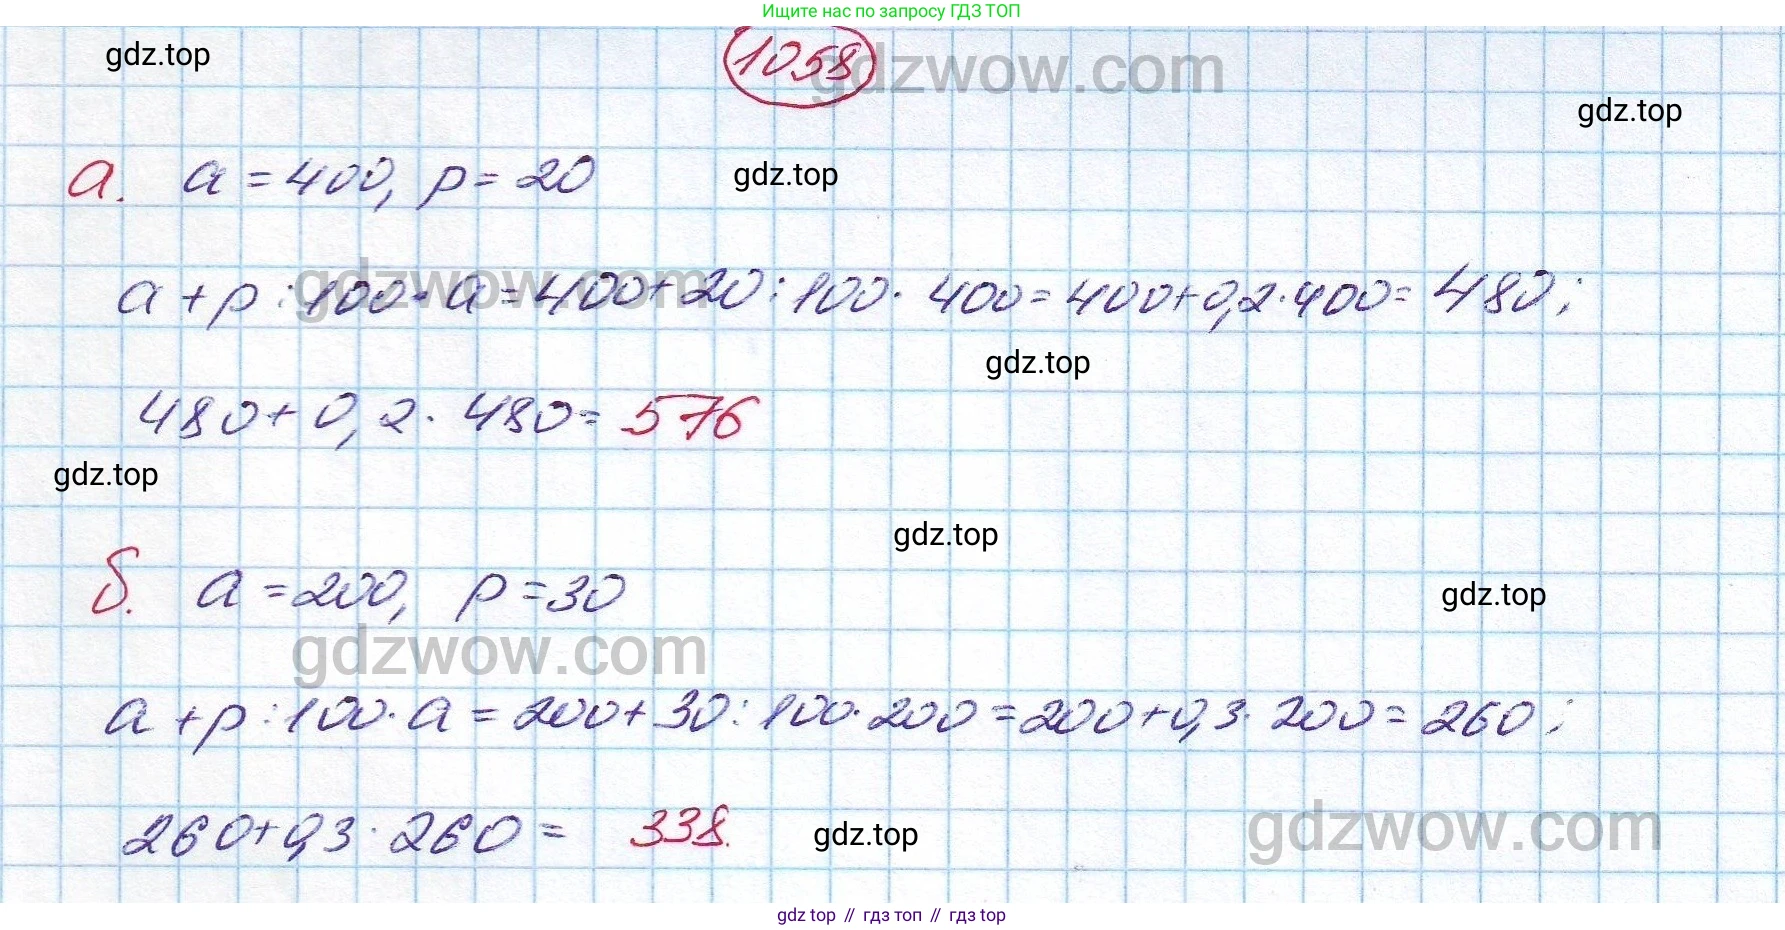 Ищите нас по запросу ГДЗ ТОП
gdz.top
1058
gdzwow.com
gdz.top
а. a = 400, p = 20
gdz.top
gdzwow.com
a + p : 100 · a = 400 + 20 : 100 · 400 = 400 + 0,2 · 400 = 480;
gdz.top
480 + 0,2 · 480 = 576
gdz.top
gdz.top
б. a = 200, p = 30
gdz.top
gdzwow.com
a + p : 100 · a = 200 + 30 : 100 · 200 = 200 + 0,3 · 200 = 260;
260 + 0,3 · 260 = 338.
gdz.top
gdzwow.com
gdz top // гдз топ // гдз top